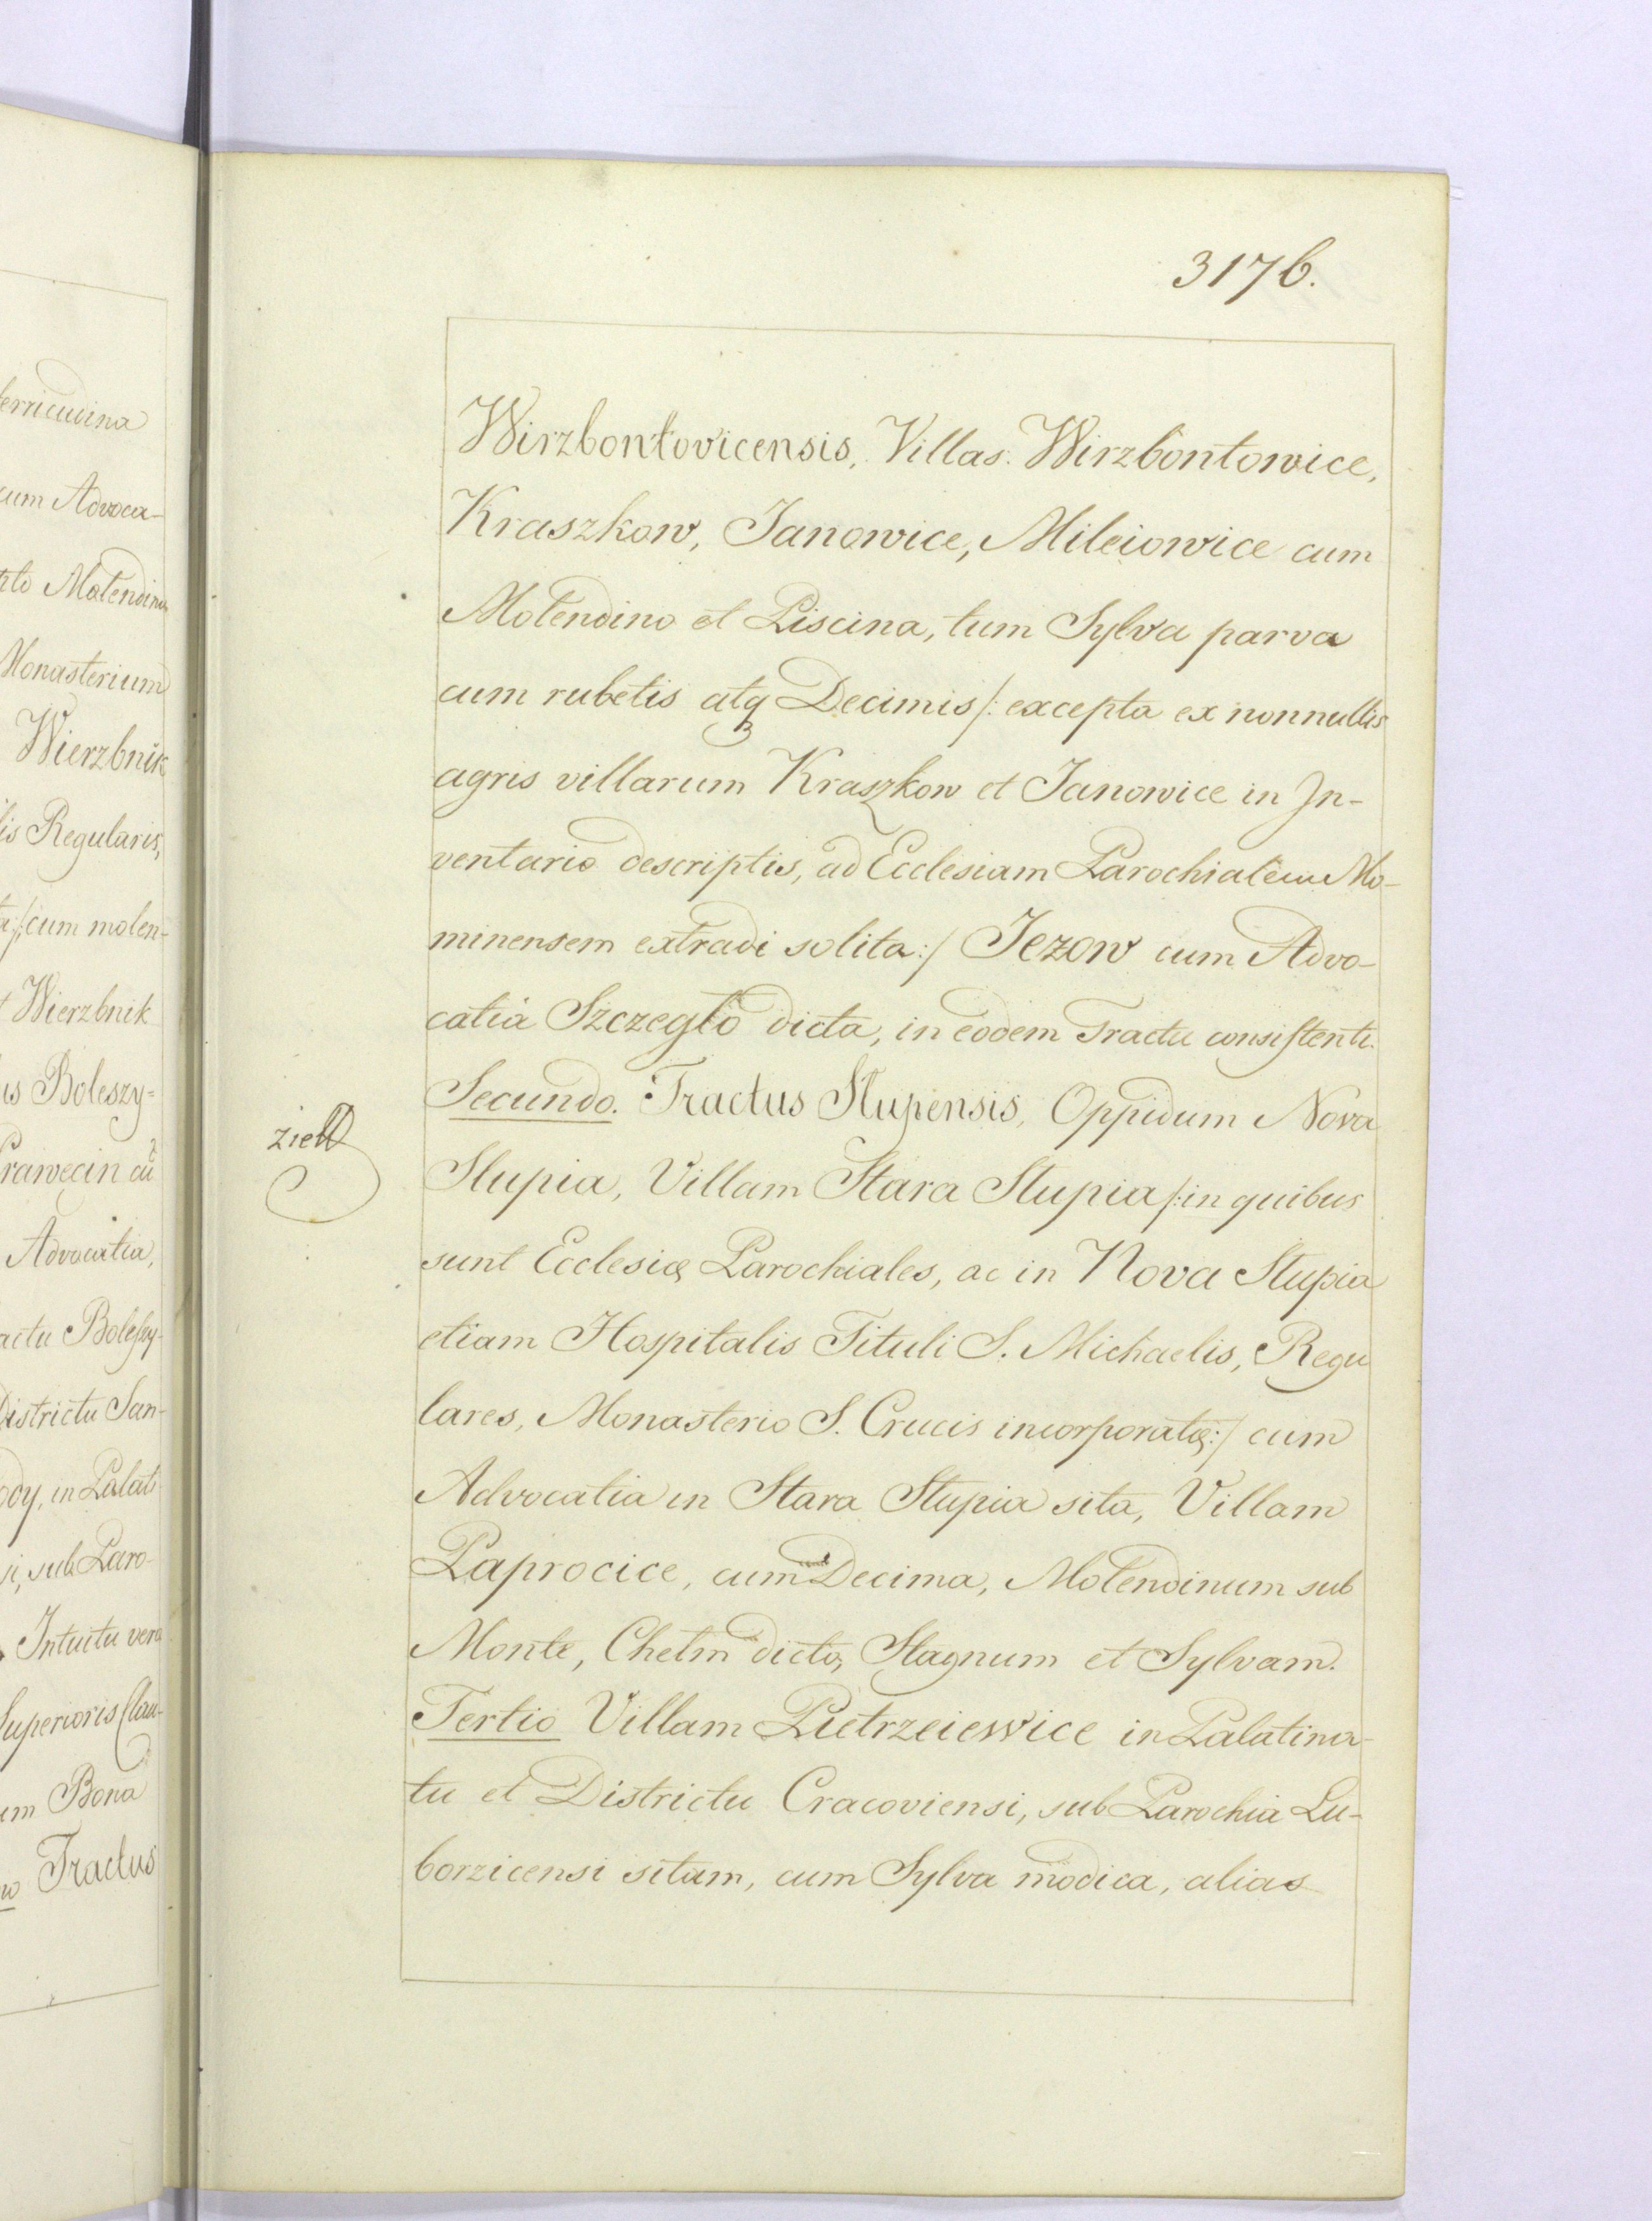 erricudina
cum Advoca-
Molendino
Monasterium
Wierzbnik
lis Regularis,
cum molen-
Wierzbnik
is Boleszy=
rawęcin cũ
Advocatia,
actu Boleszy-
Districtu San-
ody, in Palati
sub Paro-
Intuitu vero
Superioris Clau-
Bona
Tractus
3176.
Wirzbontovicensis, Villas. Wirzbontowice,
Kraszkow, Janowice, Mileiowice cum
Molendino et Piscina, tum Sylva parva
cum rubetis atq3 Decimis /: excepta ex nonnullis
agris villarum Kraszkow et Janowice in In-
ventario descriptis, ad Ecclesiam Parochialem Mo-
minensem extradi solita :/ Jezow cum Advo-
catia Szczegło dicta, in eodem Tractu consistenti.
Secundo. Tractus Slupensis, Oppidum Nova
Slupia, Villam Stara Slupia /: in quibus
sunt Ecclesię Parochiales, ac in Nova Slupia
etiam Hospitalis Tituli S. Michaelis, Regu
lares, Monasterio S. Crucis incorporatę :/ cum
Advocatia in Stara Slupia sita, Villam
Paprocice, cum Decima, Molendinum sub
Monte, Chełm dicto, Stagnum et Sylvam.
Tertio Villam Pietrzeiewice in Palatina-
tu et Districtu Cracoviensi, sub Parochia Lu-
borzicensi sitam, cum Sylva modica, alias